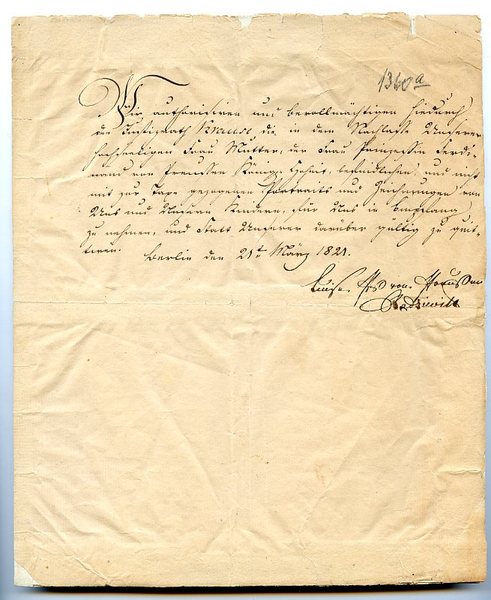 1360a
Wir authorisiren und bevollmächtigen hiedurch
den Justizrath Krause, die in dem Nachlasse Unserer
hochseeligen Frau Mutter, der Frau Prinzessin Ferdi-
nand von Preussen Königl. Hoheit, befindlichen, und nicht
mit zur Taxe gezogenen Portraits und Zeichnungen von
Uns und Unsern Kindern, für Uns in Empfang
zu nehmen, und statt Unserer darüber gültig zu quit-
tiren. Berlin den 21t März 1821.
Luise, Pss von Preussen
Radziwill